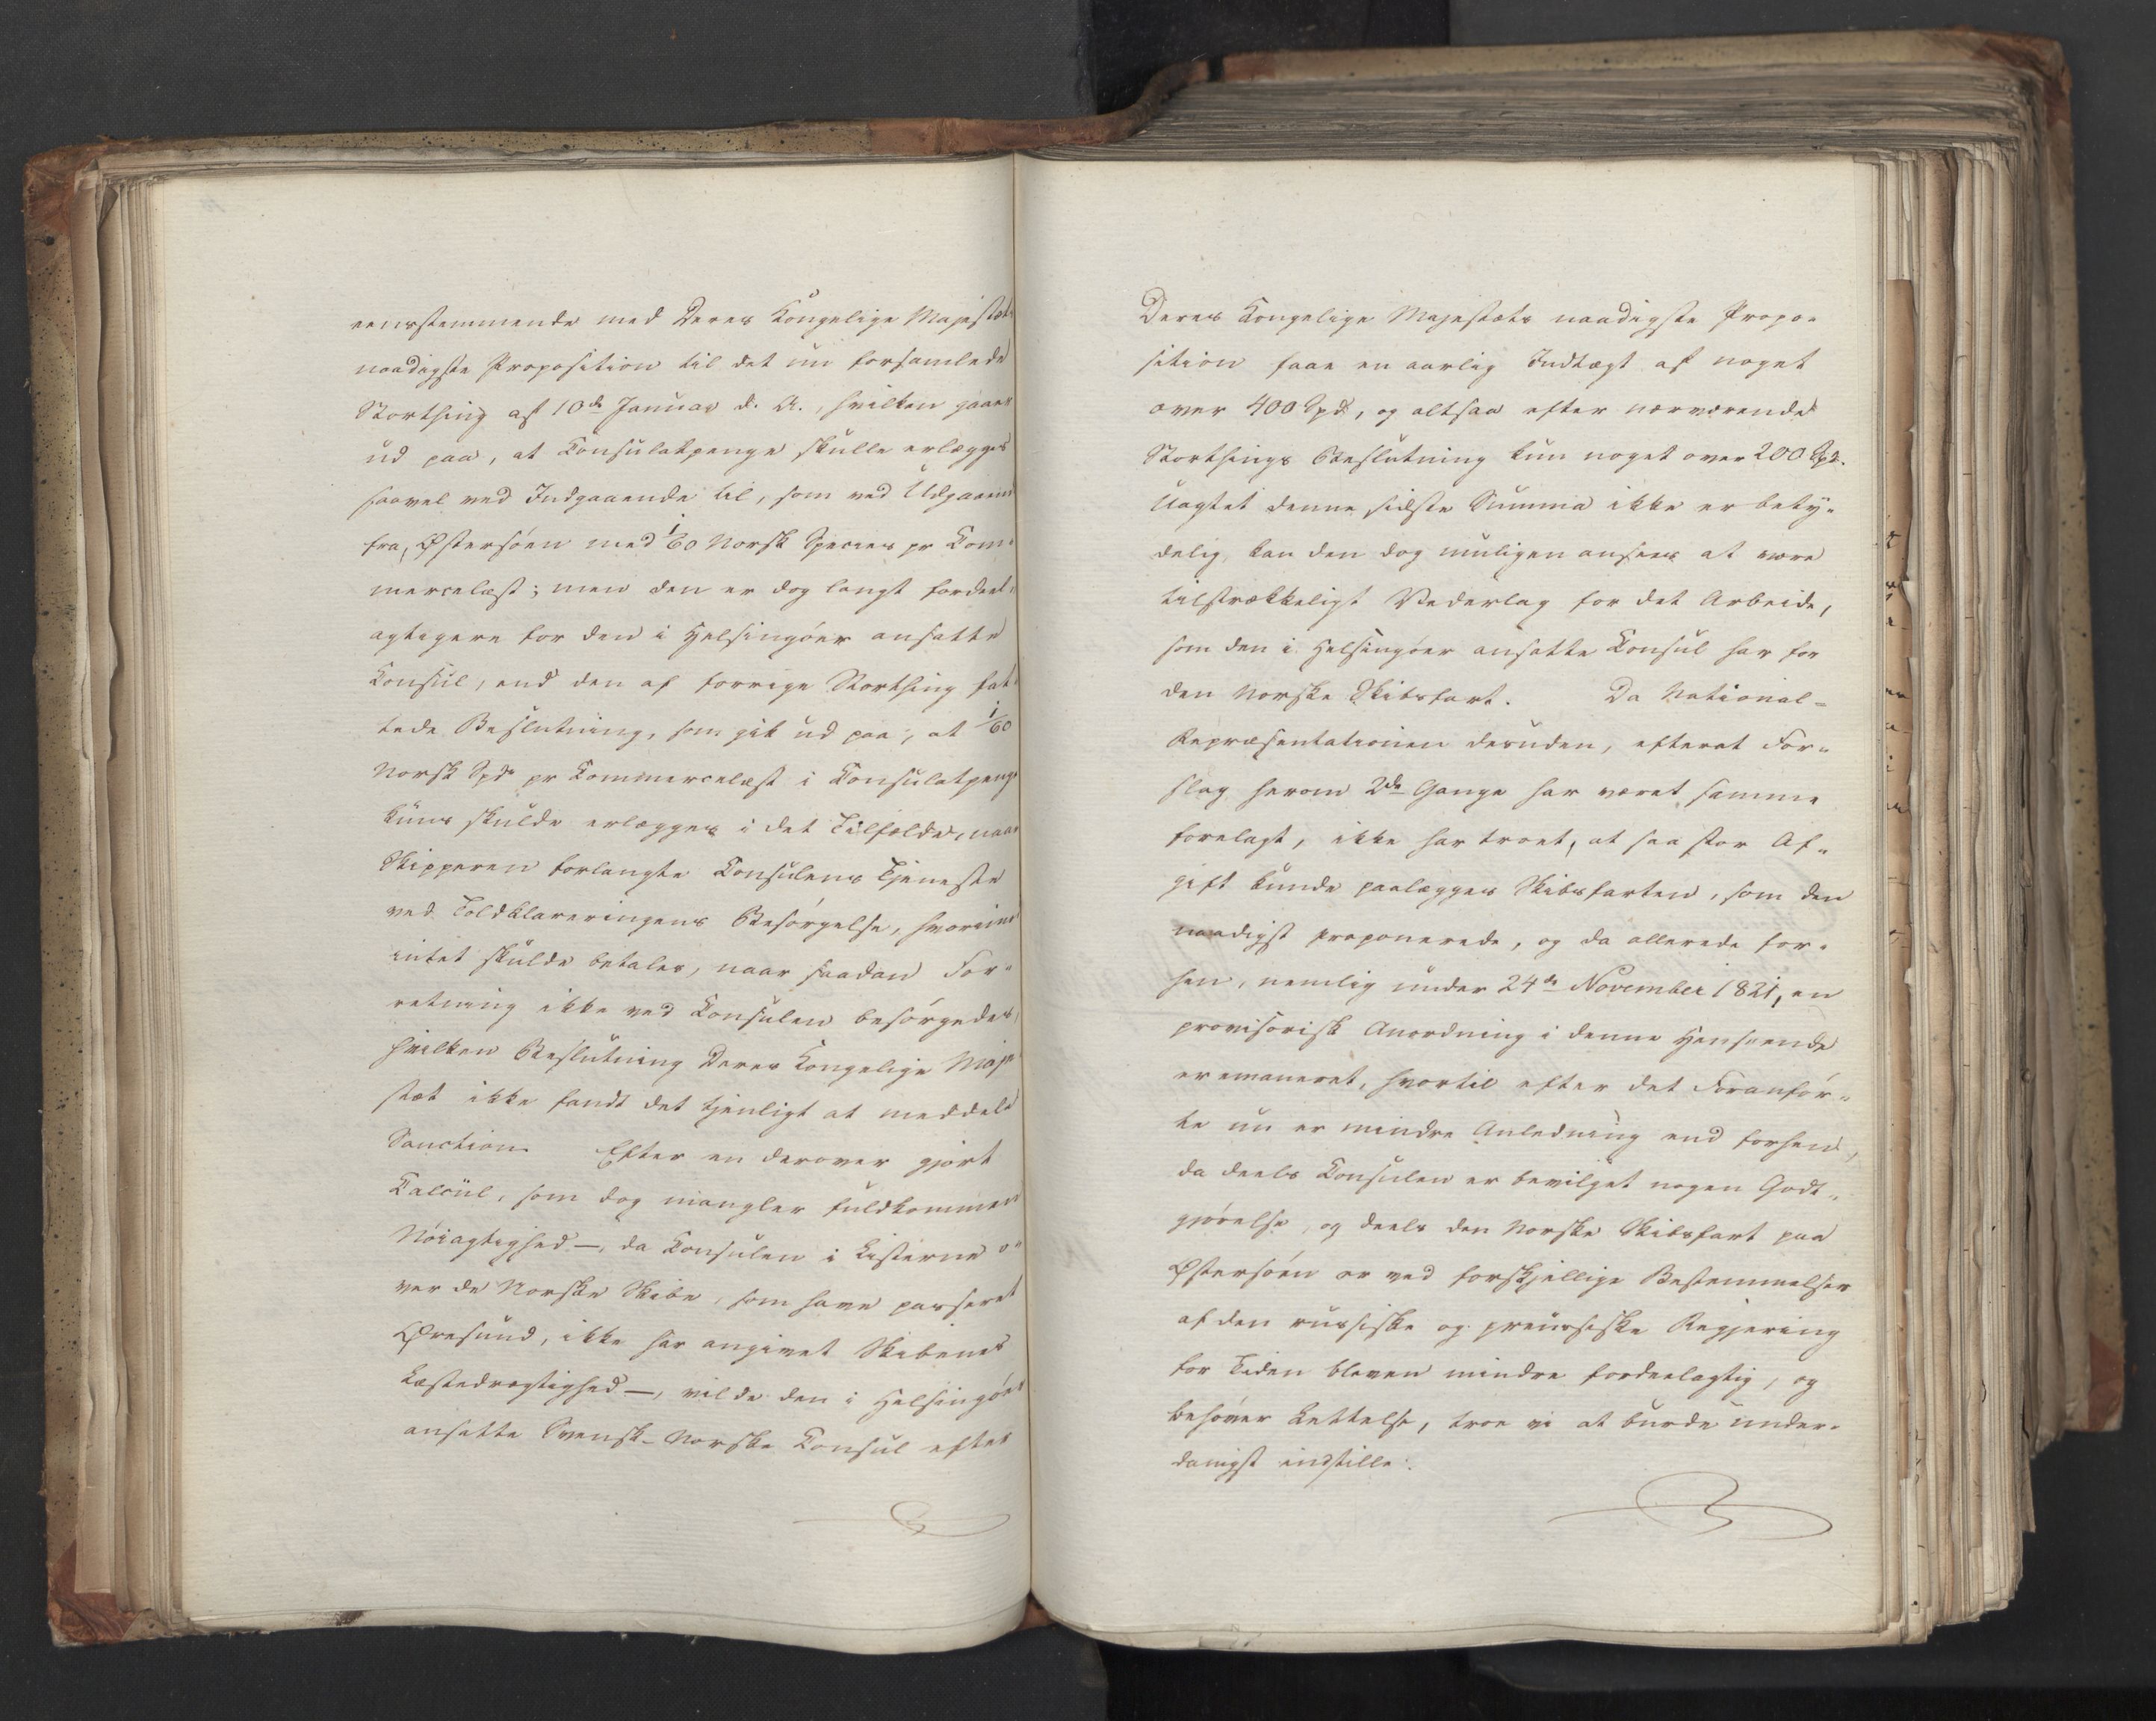 eensstemmende med Deres Kongelige Majestæts
naadigste Proposition til det nu forsamlede
Storthing af 10de Januar d. A., hvilken gaaer
ud paa, at Consulatpenge skulle erlægges
saavel ved Indgaaende til, som ved Udgaaende
fra, Østersøen med 1/60 Norsk Species pr Com-
mercelæst; men den er dog langt fordeel-
agtigere for den i Helsingöer ansatte
Consul, end den af forrige Storthing fat-
tede Beslutning, som gik ud paa, at 1/60
Norsk Spd pr Commercelæst i Consulatpenge
kuns skulde erlægges i det Tilfælde, naar
Skipperen forlangte Consulens Tjeneste
ved Toldklareringens Besörgelse, hvorimod
intet skulde betales, naar saadan For-
retning ikke ved Consulen besörgedes,
hvilken Beslutning Deres Kongelige Maje-
stæt ikke fandt det tjenligt at meddele
Sanction. Efter en derover gjort
Calcül, som dog mangler fuldkommen
Nöiagtighed —, da Consulen i Listerne o-
ver de Norske Skibe, som have passeret
Øresund, ikke har angivet Skibenes
Læstedrægtighed —, vilde den i Helsingöer
ansatte Svensk-Norske Consul efter
Deres Kongelige Majestæts naadigste Propo-
sition faae en aarlig Indtægt af noget
over 400 Spd, og altsaa efter nærværende
Storthings Beslutning kun noget over 200 Spd.
Uagtet denne sidste Summa ikke er bety-
delig, kan den dog muligen ansees at være
tilstrækkeligt Vederlag for det Arbeide,
som den i Helsingöer ansatte Consul har for
den Norske Skibsfart. Da National-
Repræsentationen desuden, efterat For-
slag herom 2de Gange har været samme
forelagt, ikke har troet, at saa stor Af-
gift kunde paalægges Skibsfarten, som den
naadigst proponerede, og da allerede for-
hen, nemlig under 24de November 1821, en
provisorisk Anordning i denne Henseende
er emaneret, hvortil efter det Foranför-
te nu er mindre Anledning end forhen,
da deels Consulen er bevilget nogen Godt-
gjörelse, og deels den Norske Skibsfart paa
Østersöen er ved forskjellige Bestemmelser
af den russiske og preussiske Regjering
for Tiden bleven mindre fordeelagtig, og
behöver Lettelse, troe vi at burde under-
danigst indstille: